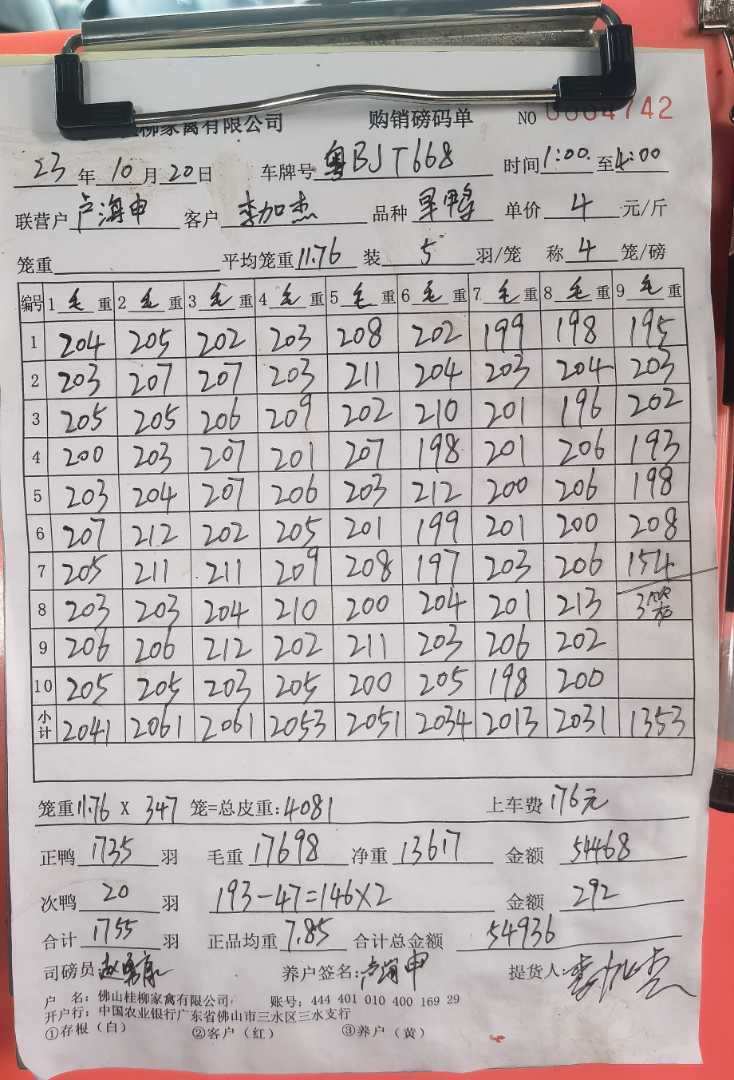 柳家禽有限公司 购销磅码单 NO 0004742
23年10月20日 车牌号 粤BJT668 时间1:00至4:00
联营户 卢海申 客户 李加杰 品种 旱鸭 单价 4 元/斤
笼重 平均笼重11.76 装 5 羽/笼 称 4 笼/磅
编号 1毛重 2毛重 3毛重 4毛重 5毛重 6毛重 7毛重 8毛重 9毛重
1 204 205 202 203 208 202 199 198 195
2 203 207 207 203 211 204 203 204 203
3 205 205 206 209 202 210 201 196 202
4 200 203 207 201 207 198 201 206 193
5 203 204 207 206 203 212 200 206 198
6 207 212 202 205 201 199 201 200 208
7 205 211 211 209 208 197 203 206 154
8 203 203 204 210 200 204 201 213 3
9 206 206 212 202 211 203 206 202
10 205 205 203 205 200 205 198 200
小计 2041 2061 2061 2053 2051 2034 2013 2031 1353
笼重11.76 X 347 笼=总皮重:4081 上车费 176元
正鸭 1735 羽 毛重 17698 净重 13617 金额 54468
次鸭 20 羽 193-47=146×2 金额 292
合计 1755 羽 正品均重 7.85 合计总金额 54936
司磅员 养户签名:卢海申 提货人:李加杰
户 名:佛山桂柳家禽有限公司 账号:444 401 010 400 169 29
开户行:中国农业银行广东省佛山市三水区三水支行
①存根(白) ②客户(红) ③养户(黄)